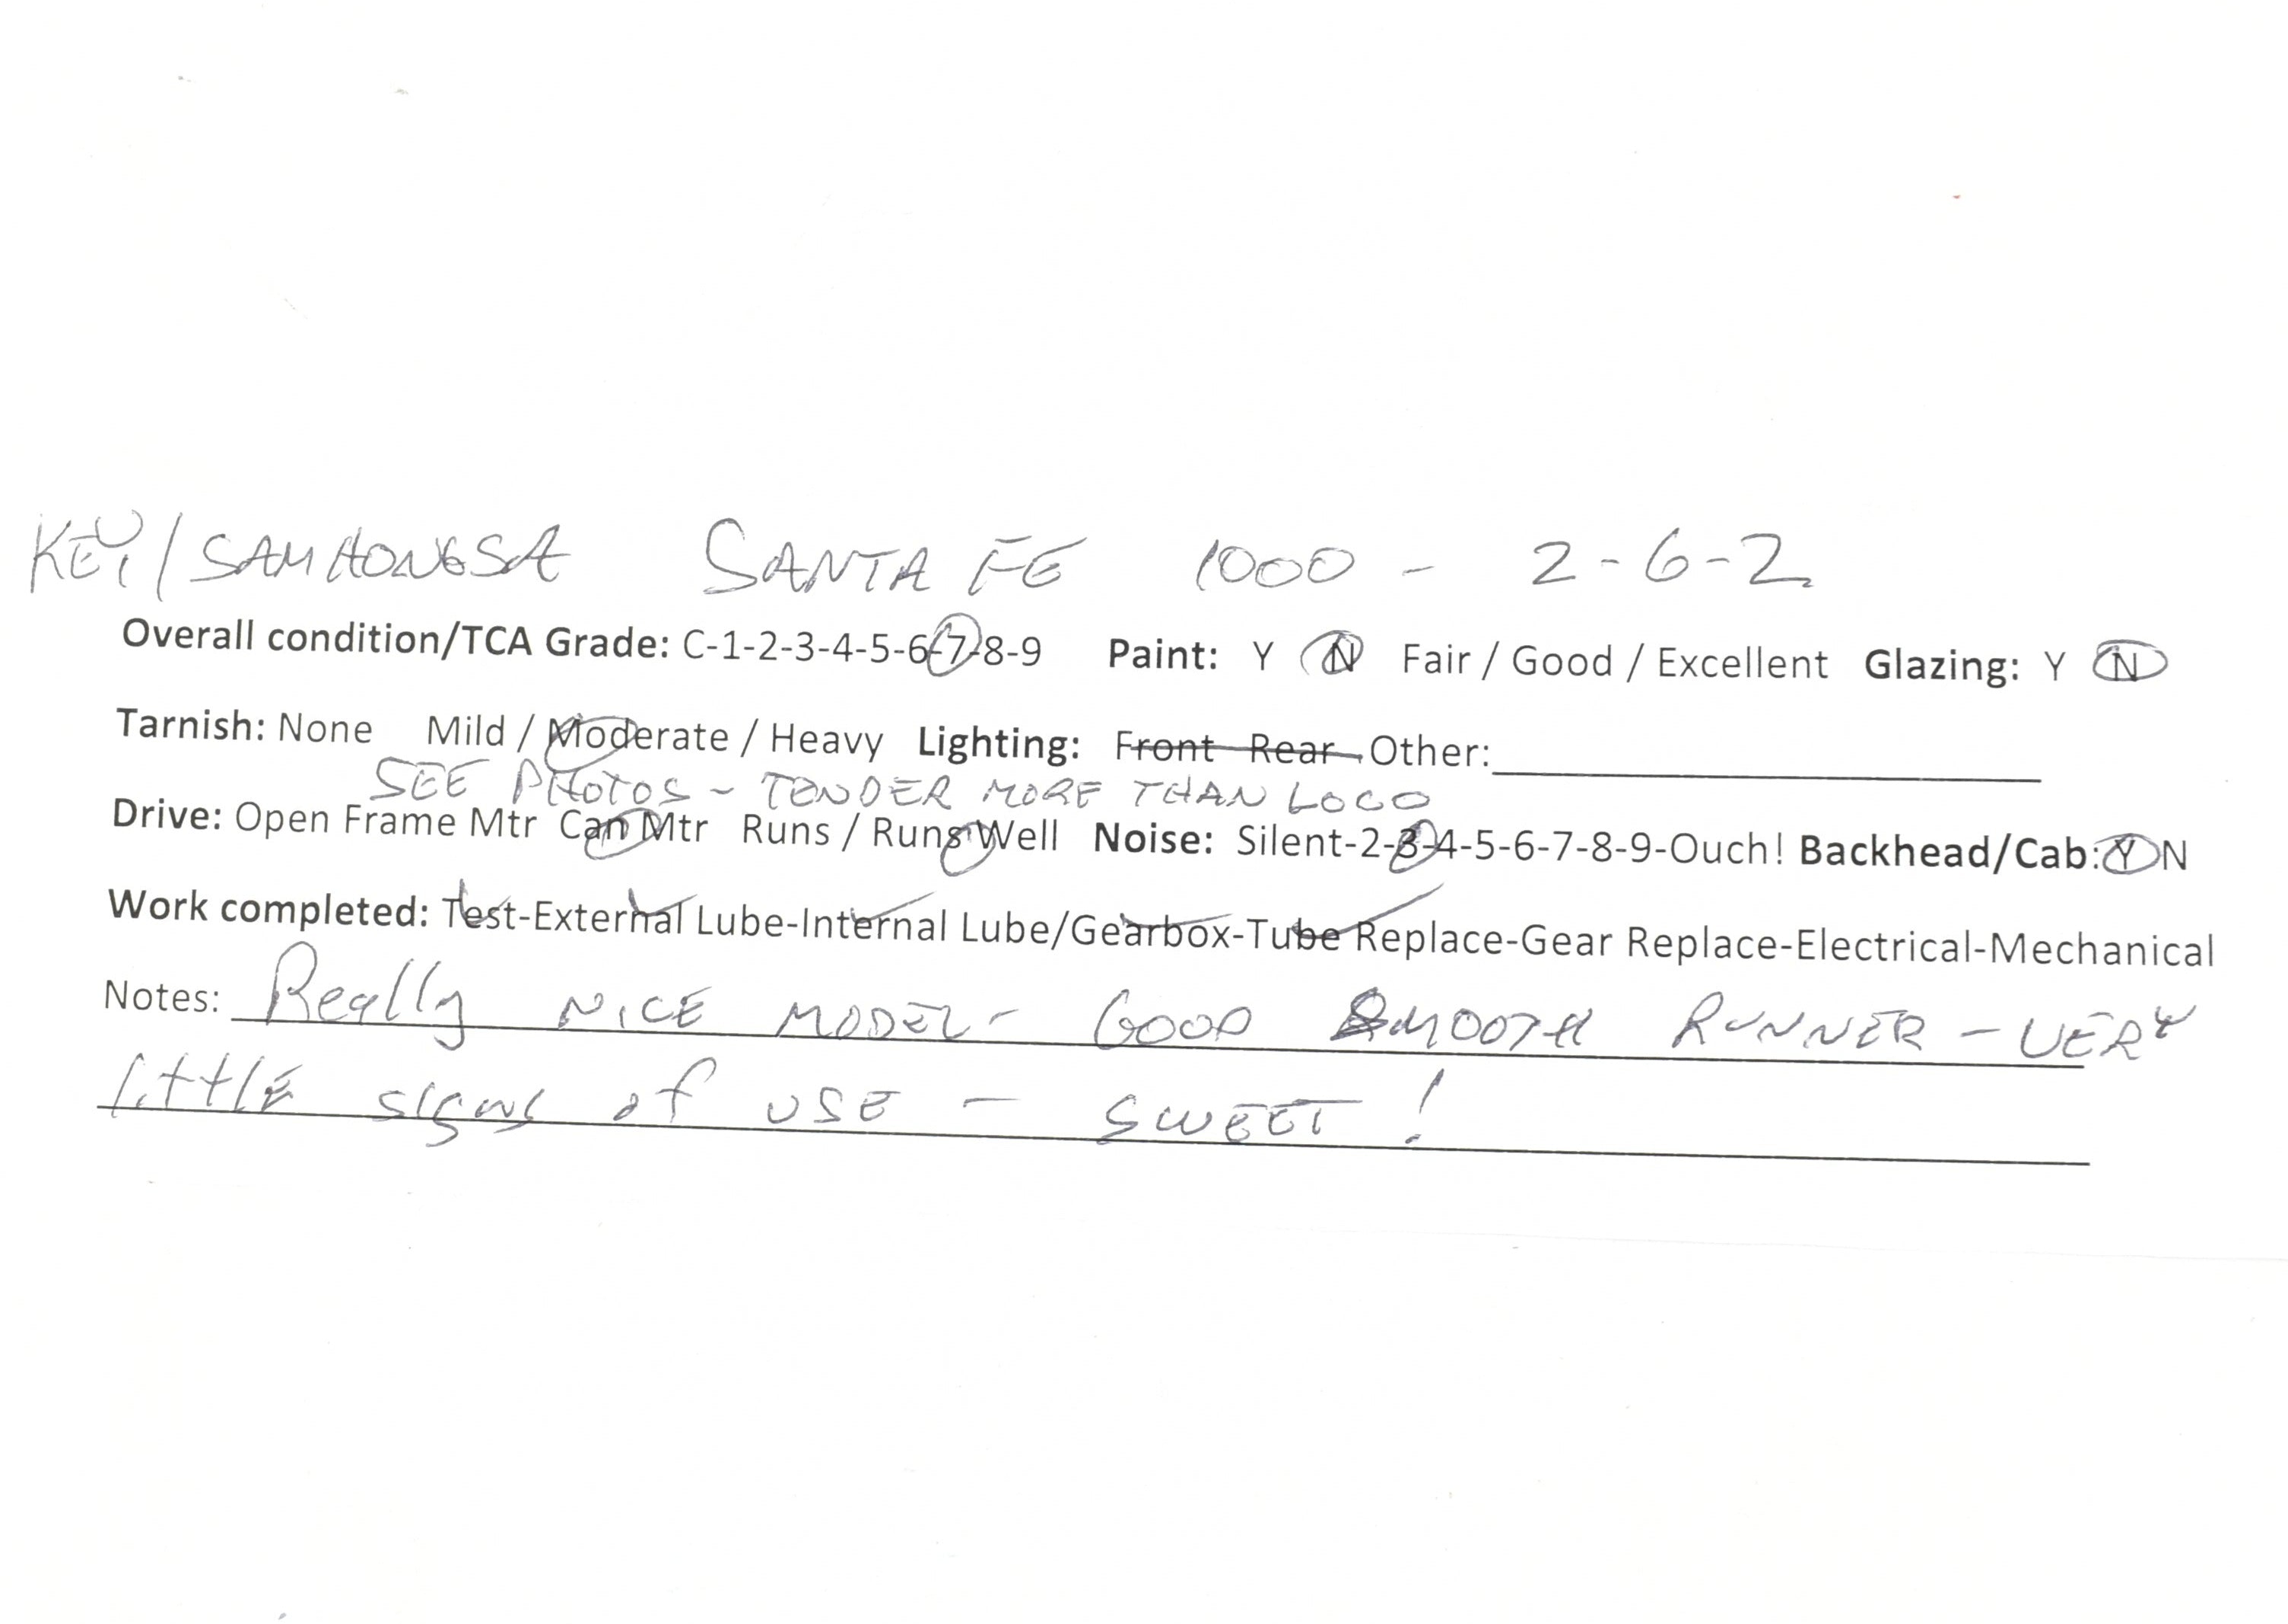 KEY/SAMHONGSA SANTA FE 1000 - 2-6-2
Overall condition/TCA Grade: C-1-2-3-4-5-6-7-8-9 Paint: Y N Fair / Good / Excellent Glazing: Y N
Tarnish: None Mild / Moderate / Heavy Lighting: Front Rear Other:
SEE PHOTOS - TENDER MORE THAN LOCO
Drive: Open Frame Mtr Can Mtr Runs / Runs Well Noise: Silent-2-3-4-5-6-7-8-9-Ouch! Backhead/Cab: Y N
Work completed: Test-External Lube-Internal Lube/Gearbox-Tube Replace-Gear Replace-Electrical-Mechanical
Notes: Really NICE MODEL- GOOD SMOOTH RUNNER - VERY
little signs of USE - SWEET!